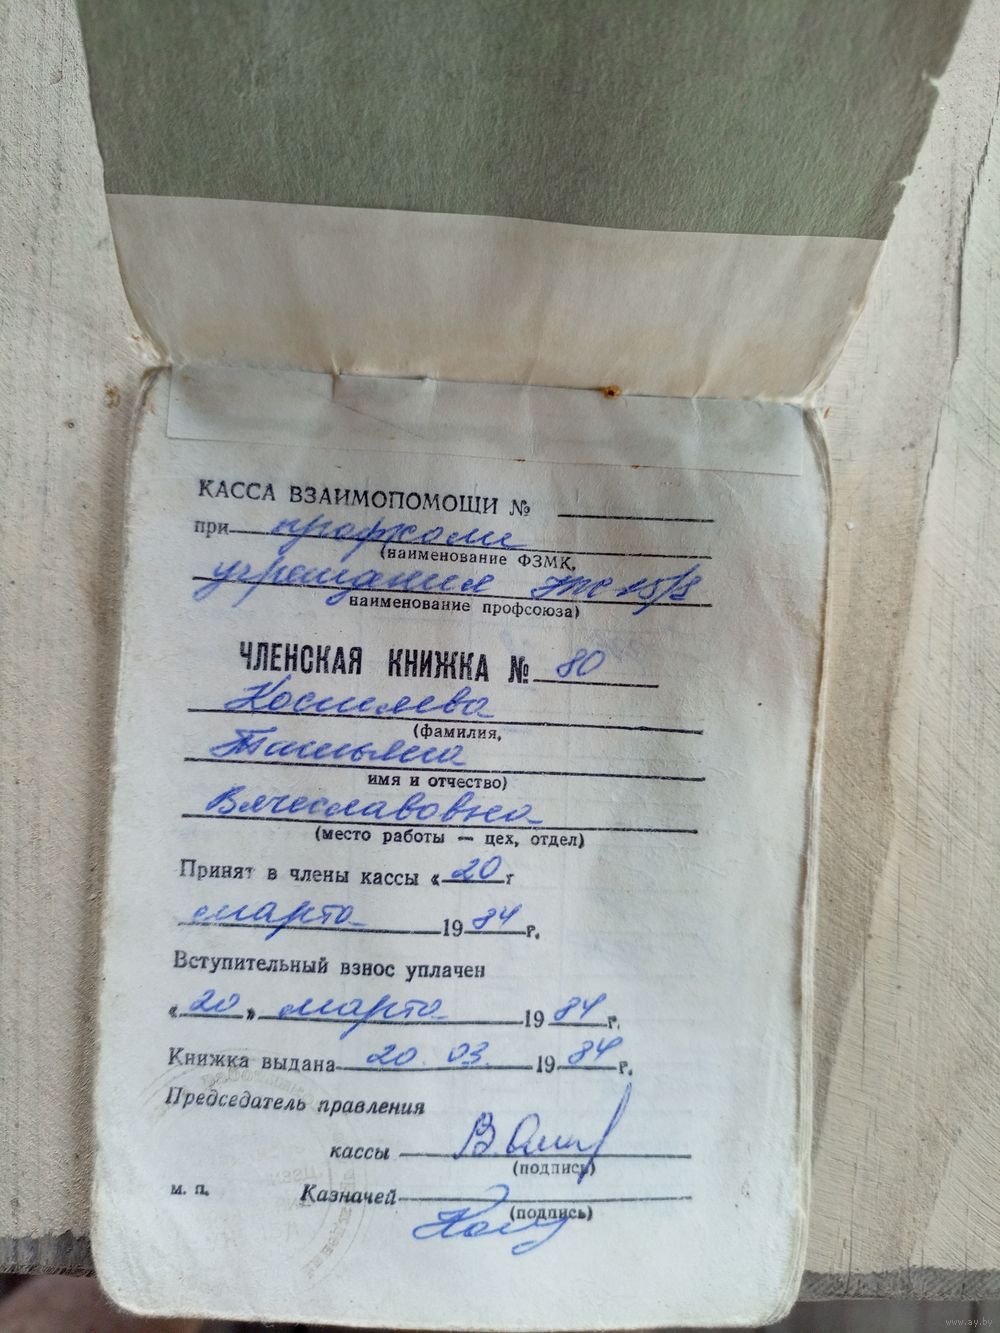 КАССА ВЗАИМОПОМОЩИ №
при профкоме
(наименование ФЗМК,
учреждения
наименование профсоюза)
ЧЛЕНСКАЯ КНИЖКА № 80
(фамилия,
Татьяна
имя и отчество)
Вячеславовна
(место работы — цех, отдел)
Принят в члены кассы « 20
марта 1984 г.
Вступительный взнос уплачен
« 20 » марта 1984 г.
Книжка выдана 20.03. 1984 г.
Председатель правления
кассы
(подпись)
м. п. Казначей
(подпись)
www.ay.by